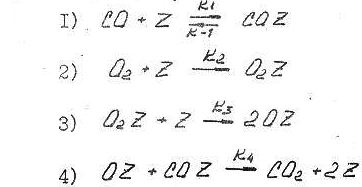 I) CO + Z K1 ⇌ K-1 COZ
2) O2 + Z K2 → O2Z
3) O2Z + Z K3 → 2OZ
4) OZ + COZ K4 → CO2 + 2Z